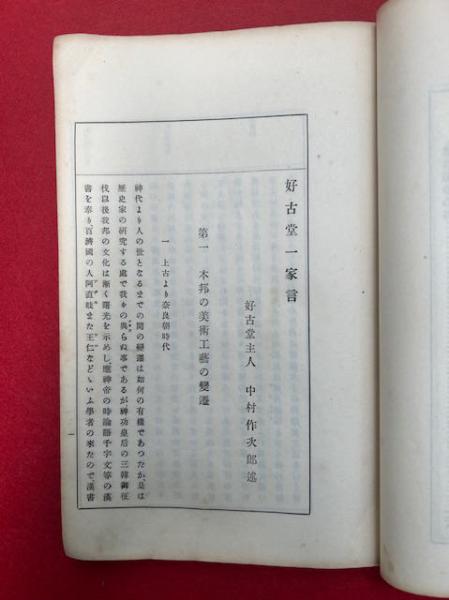 好古堂一家言
好古堂主人 中村作次郎述
第一 本邦の美術工藝の變遷
一 上古より奈良朝時代
神代より人の世となるまでの間の變遷は如何の有樣であつたか、是は
歷史家の研究する處で我々の與らぬ事であるが神功皇后の三韓御征
伐以後我邦の文化は漸く曙光を示めし、應神帝の時論語千字文等の漢
書を奉り百濟國の人阿直岐また王仁などゝいふ學者の來たので、漢書
一